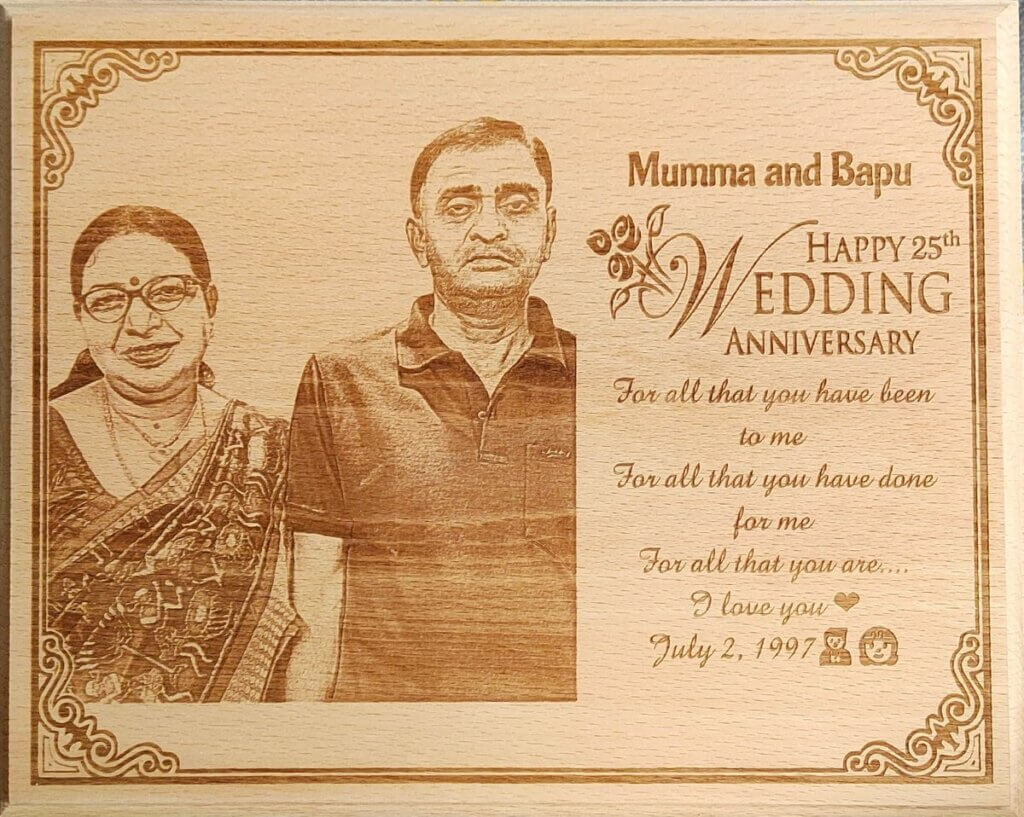 Mumma and Bapu
HAPPY 25th
WEDDING
ANNIVERSARY
For all that you have been
to me
For all that you have done
for me
For all that you are....
I love you ❤
July 2, 1997